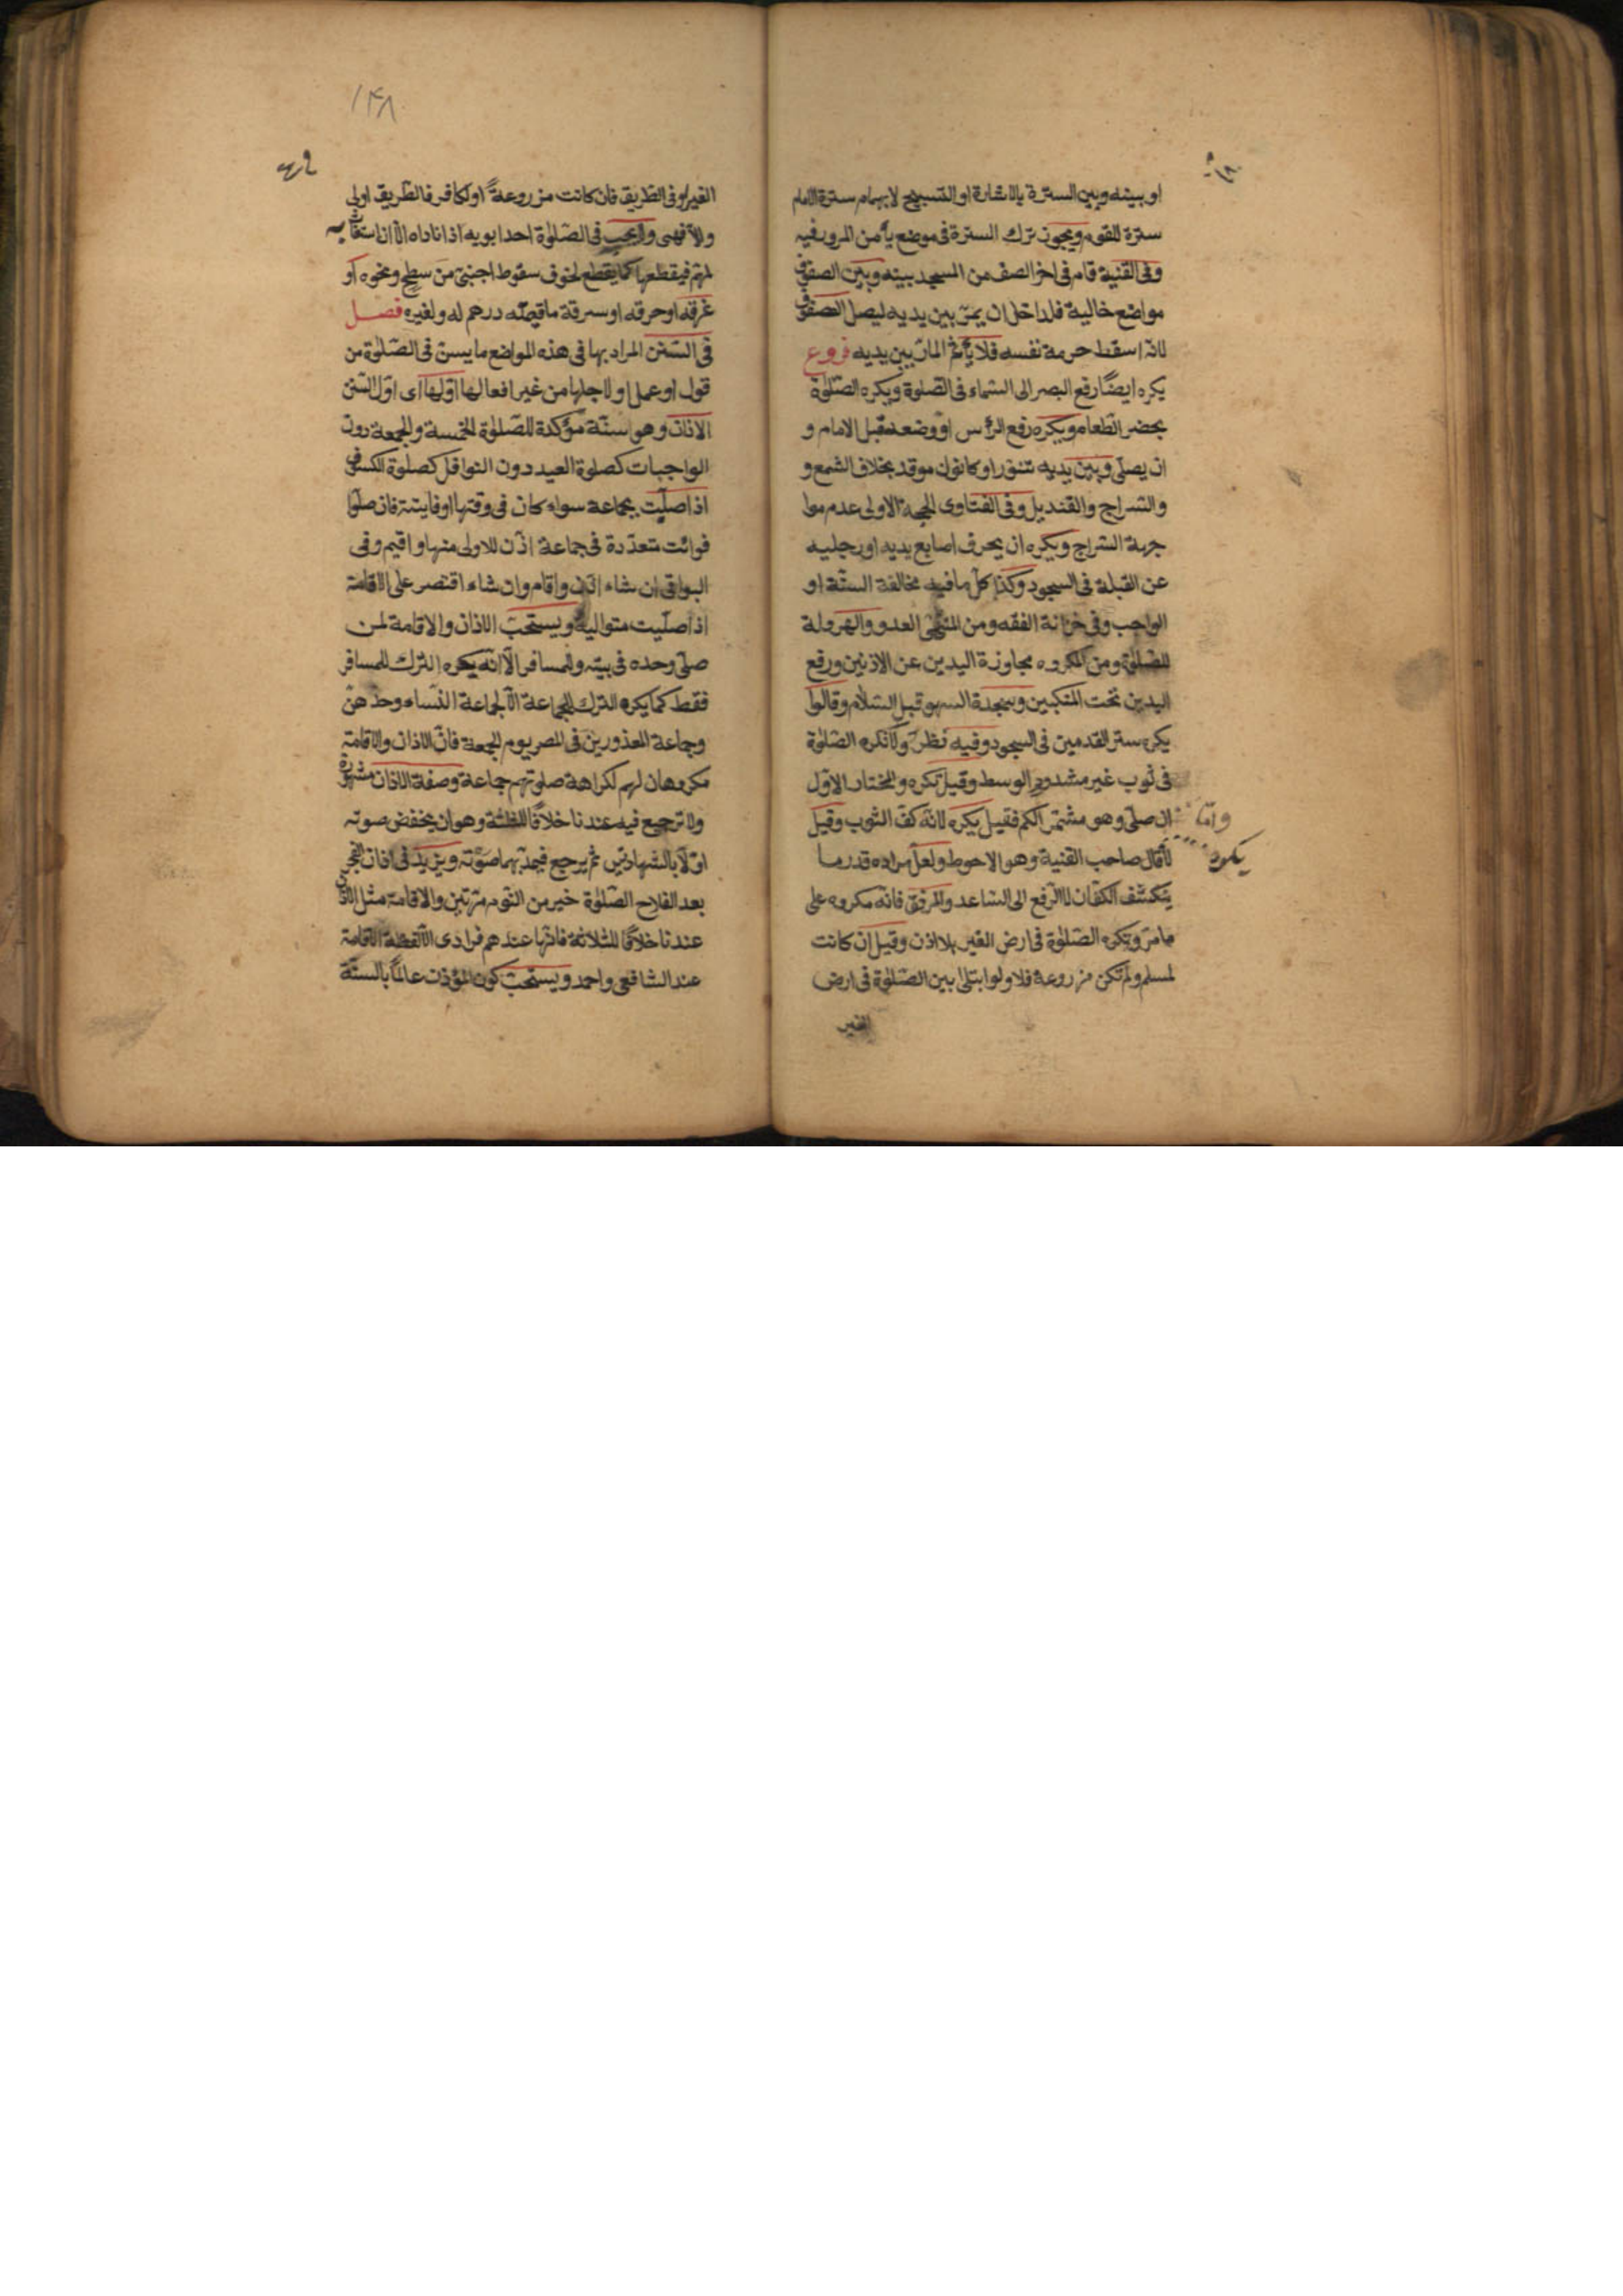 او بينه وبين السترة بالاشارة او التسبيح لا بهما م سترة الامام
سترة للقوم ويجوز ترك السترة فى موضع يأمن المرور فيه
وفى القنية قام فى اخر الصف من المسجد بينه وبين الصفوف
مواضع خالية فللداخل ان يمرّ بين يديه ليصل الصفوف
لانه اسقط حرمة نفسه فلا يأثم المارّ بين يديه فروع
يكره ايضًا رفع البصر الى السّماء فى الصّلوة ويكره الصّلوة
بحضر الطّعام ويكره رفع الرأس او وضعه قبل الامام و
ان يصلّى وبين يديه تنور او كانون موقد بخلاف الشمع و
والسّراج والقنديل وفى الفتاوى الحجة الاولى عدم موا
جهة السّراج ويكره ان يحرف اصابع يديه او رجليه
عن القبلة فى السجود وكذا كلّ ما فيه مخالفة السنّة او
الواجب وفى خزانة الفقه ومن المنهى العدو والهرولة
للصّلوة ومن المكروه مجاوزة اليدين عن الاذنين ورفع
اليدين تحت المنكبين وسجدة السهو قبل السّلام وقالوا
يكره ستر القدمين فى السجود وفيه نظر ولا نكره الصّلوة
فى ثوب غير مشدود الوسط وقيل تكره والمختار الاوّل
وامّا ان صلّى وهو مشمّر الكم فقيل يكره لانّه كفّ الثوب وقيل
يكره
لا قال صاحب القنية وهو الاحوط ولعلّ مراده قدر ما
ينكشف الكفّان لا الرّفع الى السّاعد والمرفق فانّه مكروه على
ما مرّ وتكره الصّلوة فى ارض الغير بلا اذن وقيل ان كانت
لمسلم ولم تكن مزروعة فلا ولو ابتلى بين الصّلوة فى ارض
الغير
١٤٨
الغير او فى الطّريق فان كانت مزروعةً او لكافر فالطّريق اولى
والاّ فهى ولا يجب فى الصّلوة احد ابويه اذا ناداه الاّ ان استغاث به
لمهمّ فيقطعها كما يقطع لخوف سقوط اجنبىّ من سطح ونحوه او
غرقه او حرقه او سرقة ما قيمته درهم له ولغيره فصل
فى السّنن المراد بها فى هذه المواضع ما يسنّ فى الصّلوة من
قول او عمل او لاجلها من غير افعالها اوّلها اى اوّل السّنن
الاذان وهو سنّة مؤكدة للصّلوة الخمسة والجمعة دون
الواجبات كصلوة العيد دون النوافل كصلوة الكسوف
اذا صلّيت بجماعة سواء كان فى وقتها او فايتة فان صلّوا
فوائت متعدّدة فى جماعة اذّن للاولى منها واقيم وفى
البواقى ان شاء اذّن واقام وان شاء اقتصر على الاقامة
اذا صلّيت متوالية ويستحبّ الاذان والاقامة لمن
صلّى وحده فى بيته وللمسافر الاّ انّه يكره الترك للمسافر
فقط كما يكره الترك للجماعة الاّ لجماعة النّساء وحدهنّ
وجماعة المعذورين فى المصر يوم الجمعة فانّ الاذان والاقامة
مكروهان لهم لكراهة صلوتهم جماعة وصفة الاذان مشهورة
ولا ترجيع فيه عندنا خلافًا للثلثة وهو ان يخفض صوته
اوّلًا بالشهادتين ثم يرجع فيمدّ بهما صوته ويزيد فى اذان الفجر
بعد الفلاح الصّلوة خير من النّوم مرّتين والاقامة مثل الاذان
عندنا خلافًا للثلاثة فانّها عندهم فرادى الاّ لفظة الاقامة
عند الشافعى واحمد ويستحبّ كون المؤذن عالمًا بالسنّة